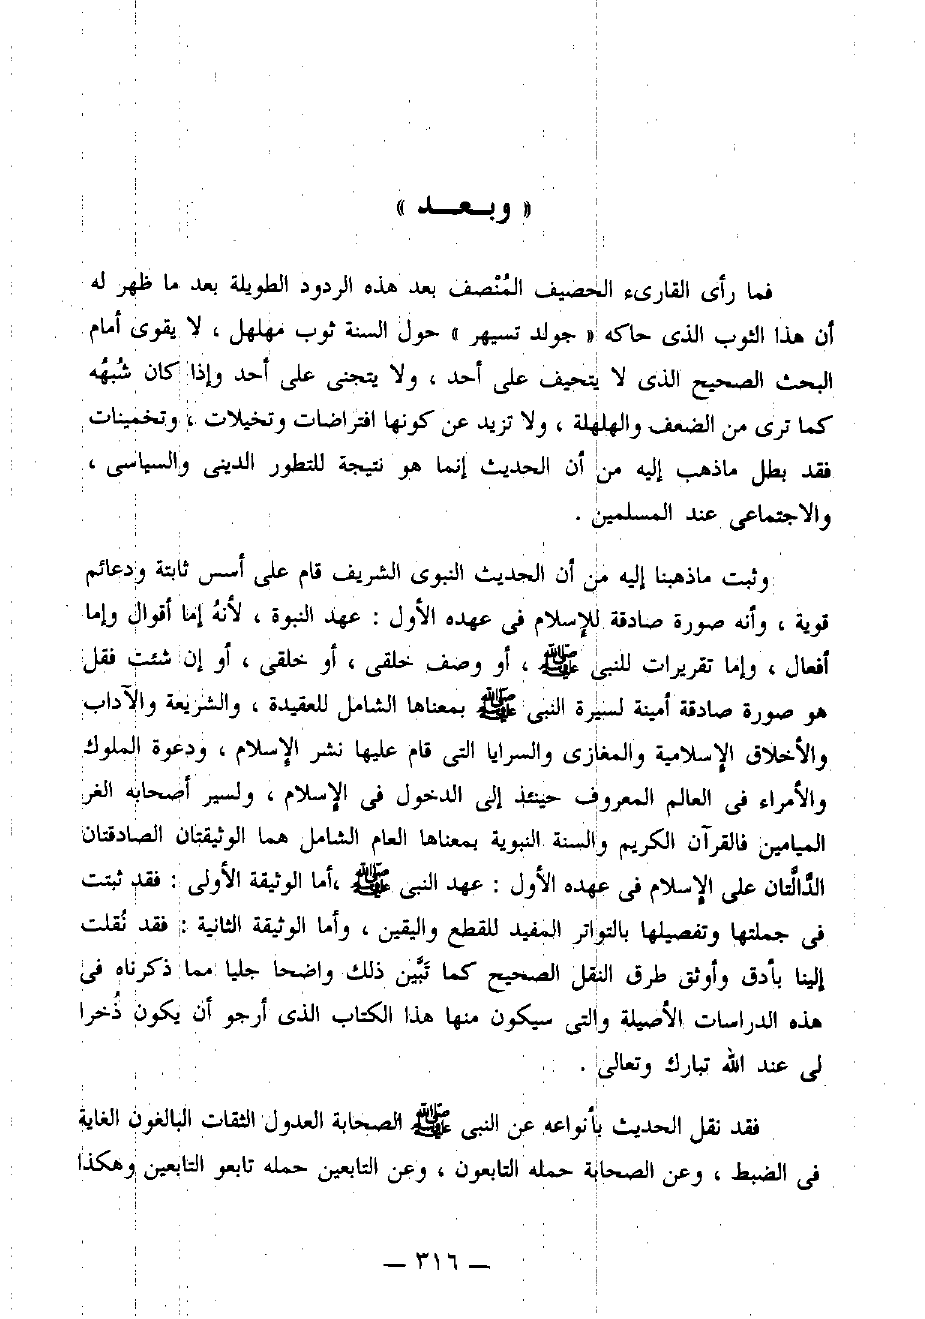 « وبـعـــد »
فما رأى القارىء الحصيف المُنْصف بعد هذه الردود الطويلة بعد ما ظهر له
أن هذا الثوب الذى حاكه « جولد تسيهر » حول السنة ثوب مهلهل ، لا يقوى أمام
البحث الصحيح الذى لا يتحيف على أحد ، ولا يتجنى على أحد وإذا كان شُبهُه
كما ترى من الضعف والهلهلة ، ولا تزيد عن كونها افتراضات وتخيلات ، وتخمينات
فقد بطل ماذهب إليه من أن الحديث إنما هو نتيجة للتطور الدينى والسياسى ،
والاجتماعى عند المسلمين .
وثبت ماذهبنا إليه من أن الحديث النبوى الشريف قام على أسس ثابتة ودعائم
قوية ، وأنه صورة صادقة للإسلام فى عهده الأول : عهد النبوة ، لأنهُ إما أقوال وإما
أفعال ، وإما تقريرات للنبى ﷺ ، أو وصف خلقى ، أو خلقى ، أو إن شئت فقل
هو صورة صادقة أمينة لسيرة النبى ﷺ بمعناها الشامل للعقيدة ، والشريعة والآداب
والأخلاق الإسلامية والمغازى والسرايا التى قام عليها نشر الإسلام ، ودعوة الملوك
والأمراء فى العالم المعروف حينئذ إلى الدخول فى الإسلام ، ولسير أصحابه الغر
الميامين فالقرآن الكريم والسنة النبوية بمعناها العام الشامل هما الوثيقتان الصادقتان
الدَّالَّتان على الإسلام فى عهده الأول : عهد النبى ﷺ ،أما الوثيقة الأولى : فقد ثبتت
فى جملتها وتفصيلها بالتواتر المفيد للقطع واليقين ، وأما الوثيقة الثانية : فقد نُقلت
إلينا بأدق وأوثق طرق النقل الصحيح كما تَبَّين ذلك واضحا جليا مما ذكرناه فى
هذه الدراسات الأصيلة والتى سيكون منها هذا الكتاب الذى أرجو أن يكون ذُخرا
لى عند الله تبارك وتعالى .
فقد نقل الحديث بأنواعه عن النبى ﷺ الصحابة العدول الثقات البالغون الغاية
فى الضبط ، وعن الصحابة حمله التابعون ، وعن التابعين حمله تابعو التابعين وهكذا
— ٣١٦ —